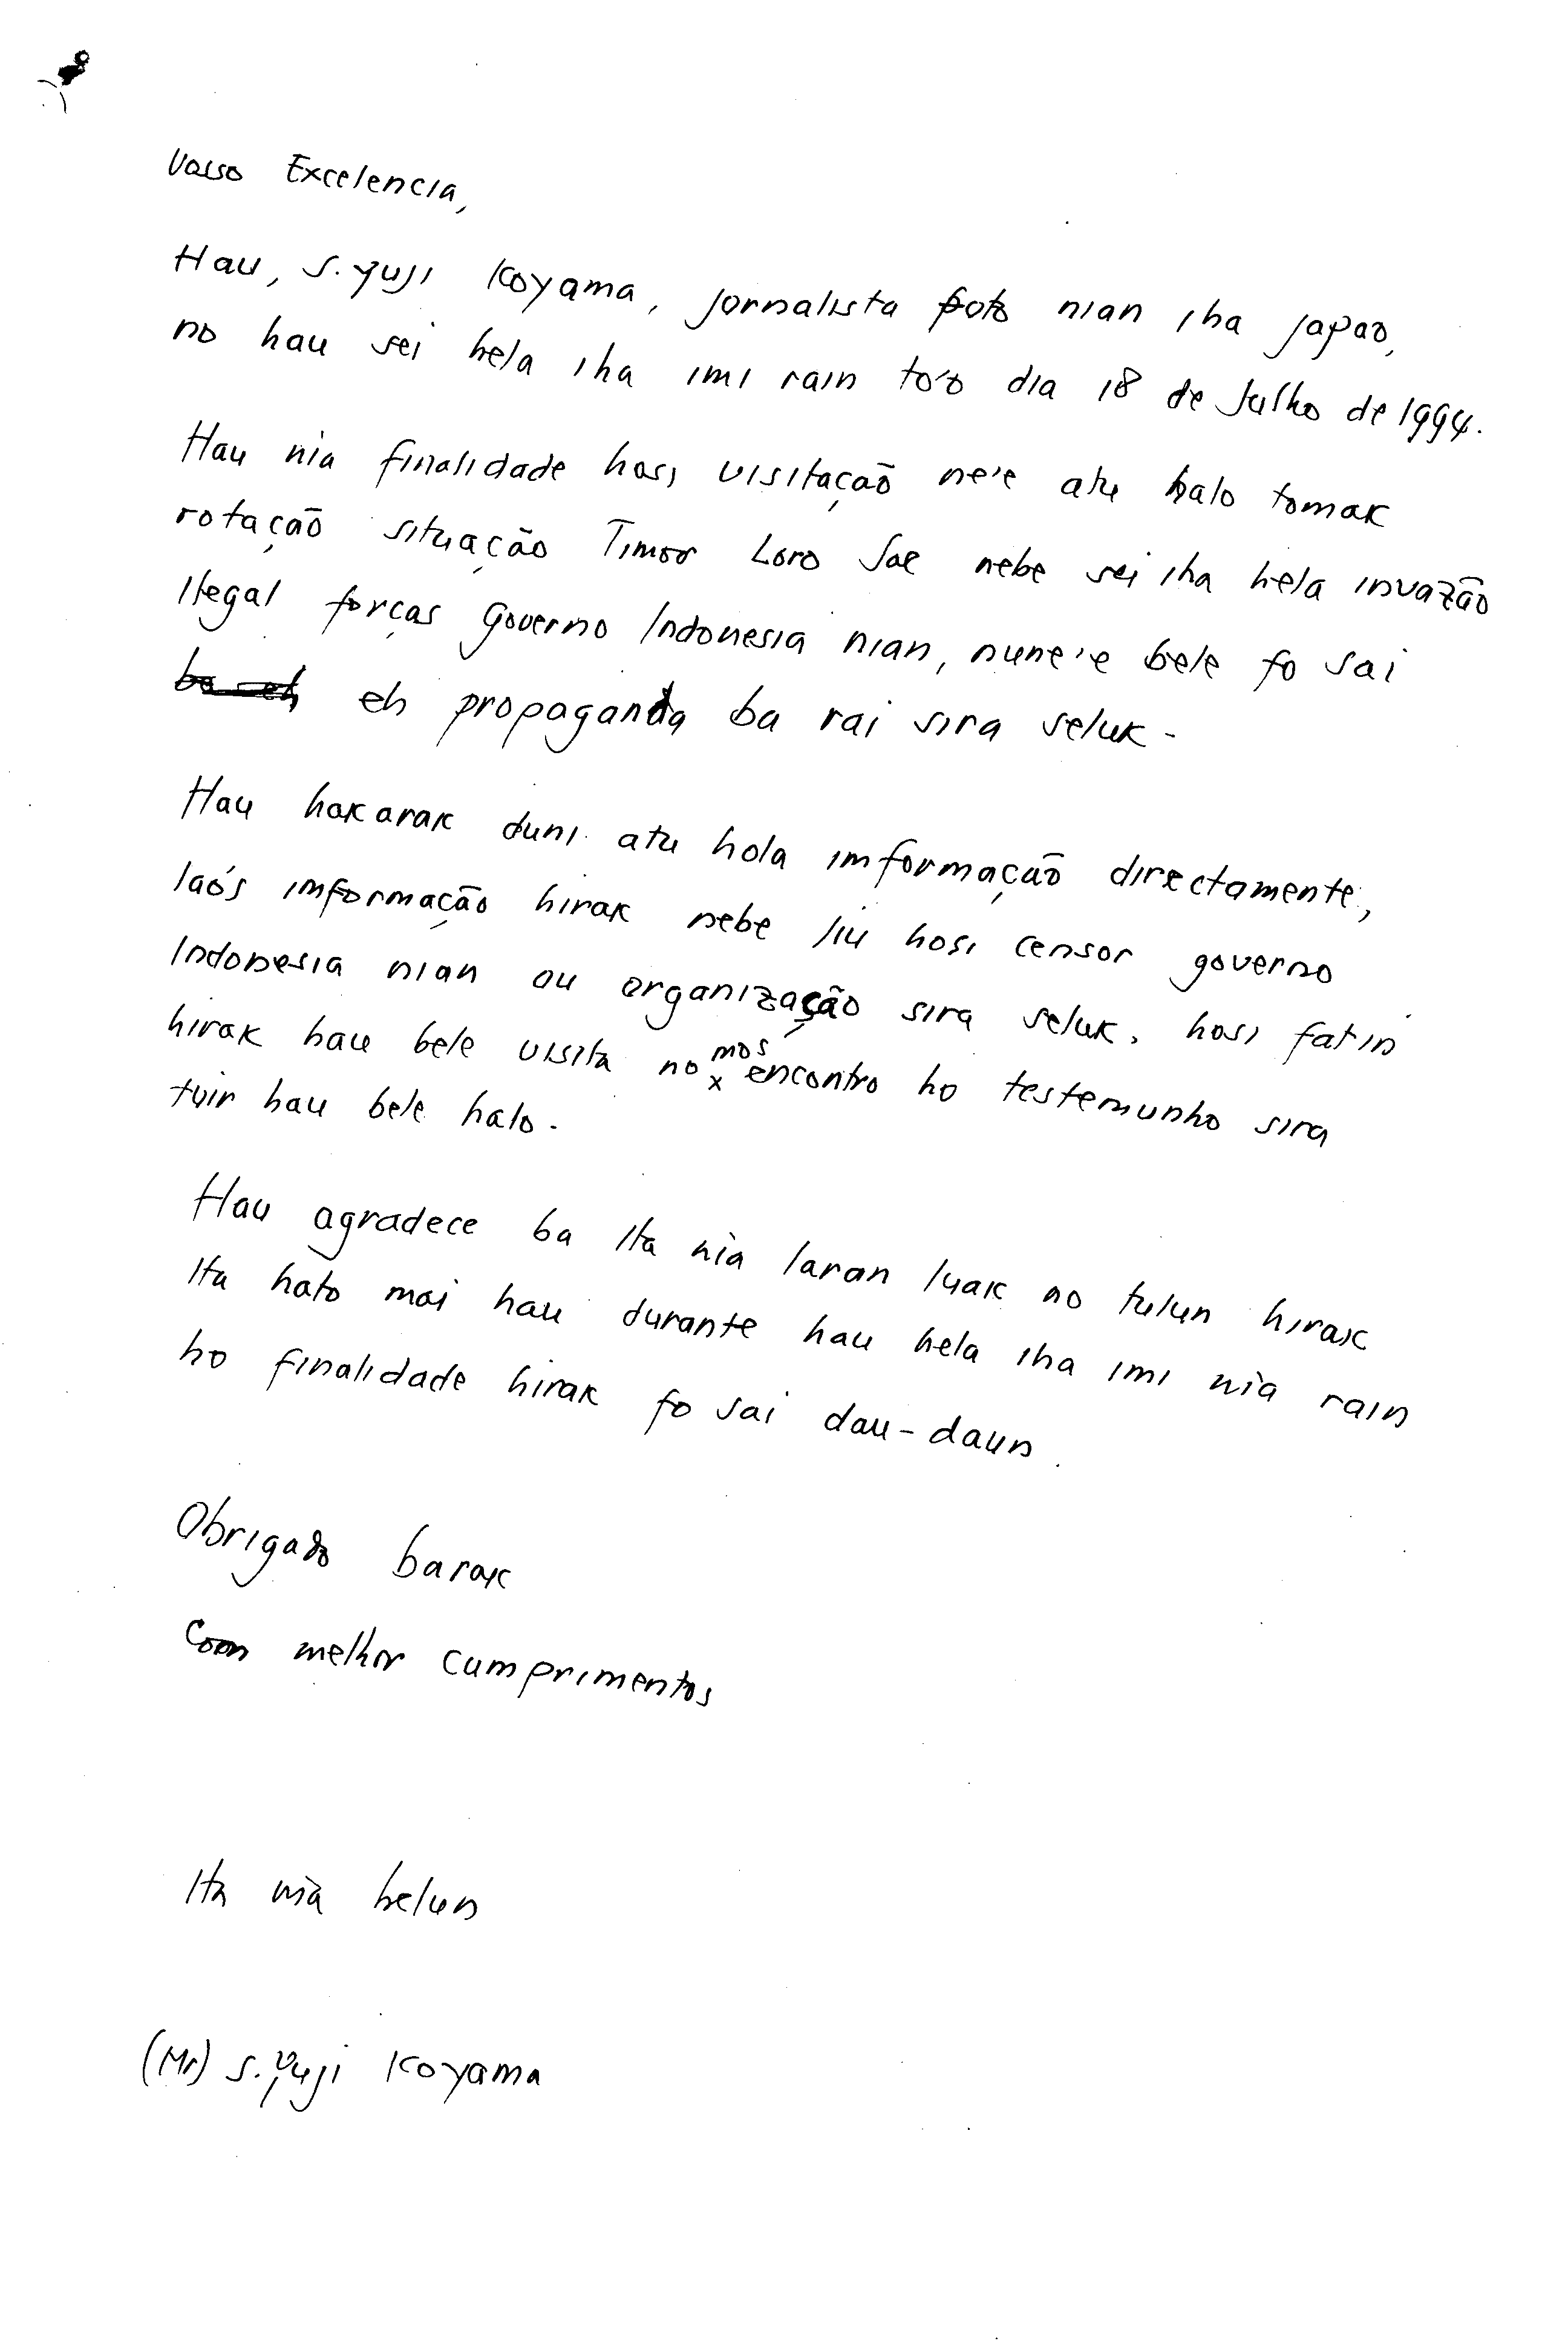 Vosso Excelencia,
Hau, S. Yuji Koyama, jornalista foto nian iha Japao,
no hau sei hela iha imi rain to'o dia 18 de Julho de 1994.
Hau nia finalidade hosi visitação ne'e atu halo tomak
rotação situação Timor Loro Sae nebe sei iha hela invazão
ilegal forças governo Indonesia nian, nune'e bele fo sai
eh propaganda ba rai sira seluk.
Hau hakarak duni atu hola imformação directamente,
laós imformação hirak nebe liu hosi censor governo
Indonesia nian ou organização sira seluk, hosi fatin
hirak hau bele visita no mos encontro ho testemunho sira
tuir hau bele halo.
Hau agradece ba Ita nia laran luak no tulun hirak
Ita hato mai hau durante hau hela iha imi nia rain
ho finalidade hirak fo sai dau-daun.
Obrigado barak
Com melhor cumprimentos
Ita nia belun
(Mr) S. Yuji Koyama